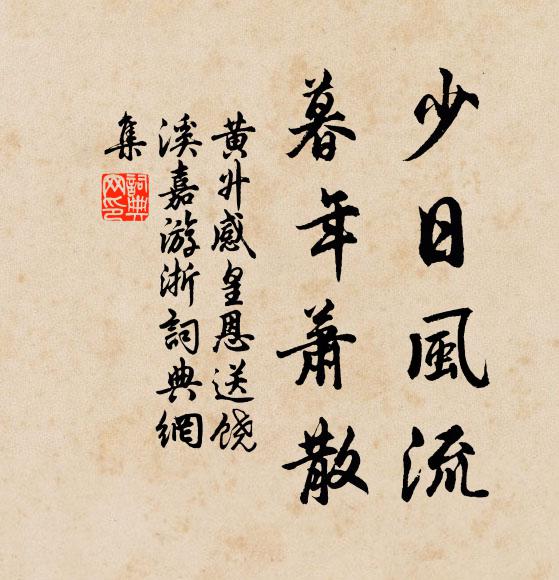 少日風流
暮年蕭散
黃升感皇恩送饶
溪嘉游浙詞典網
集
詞典
网印